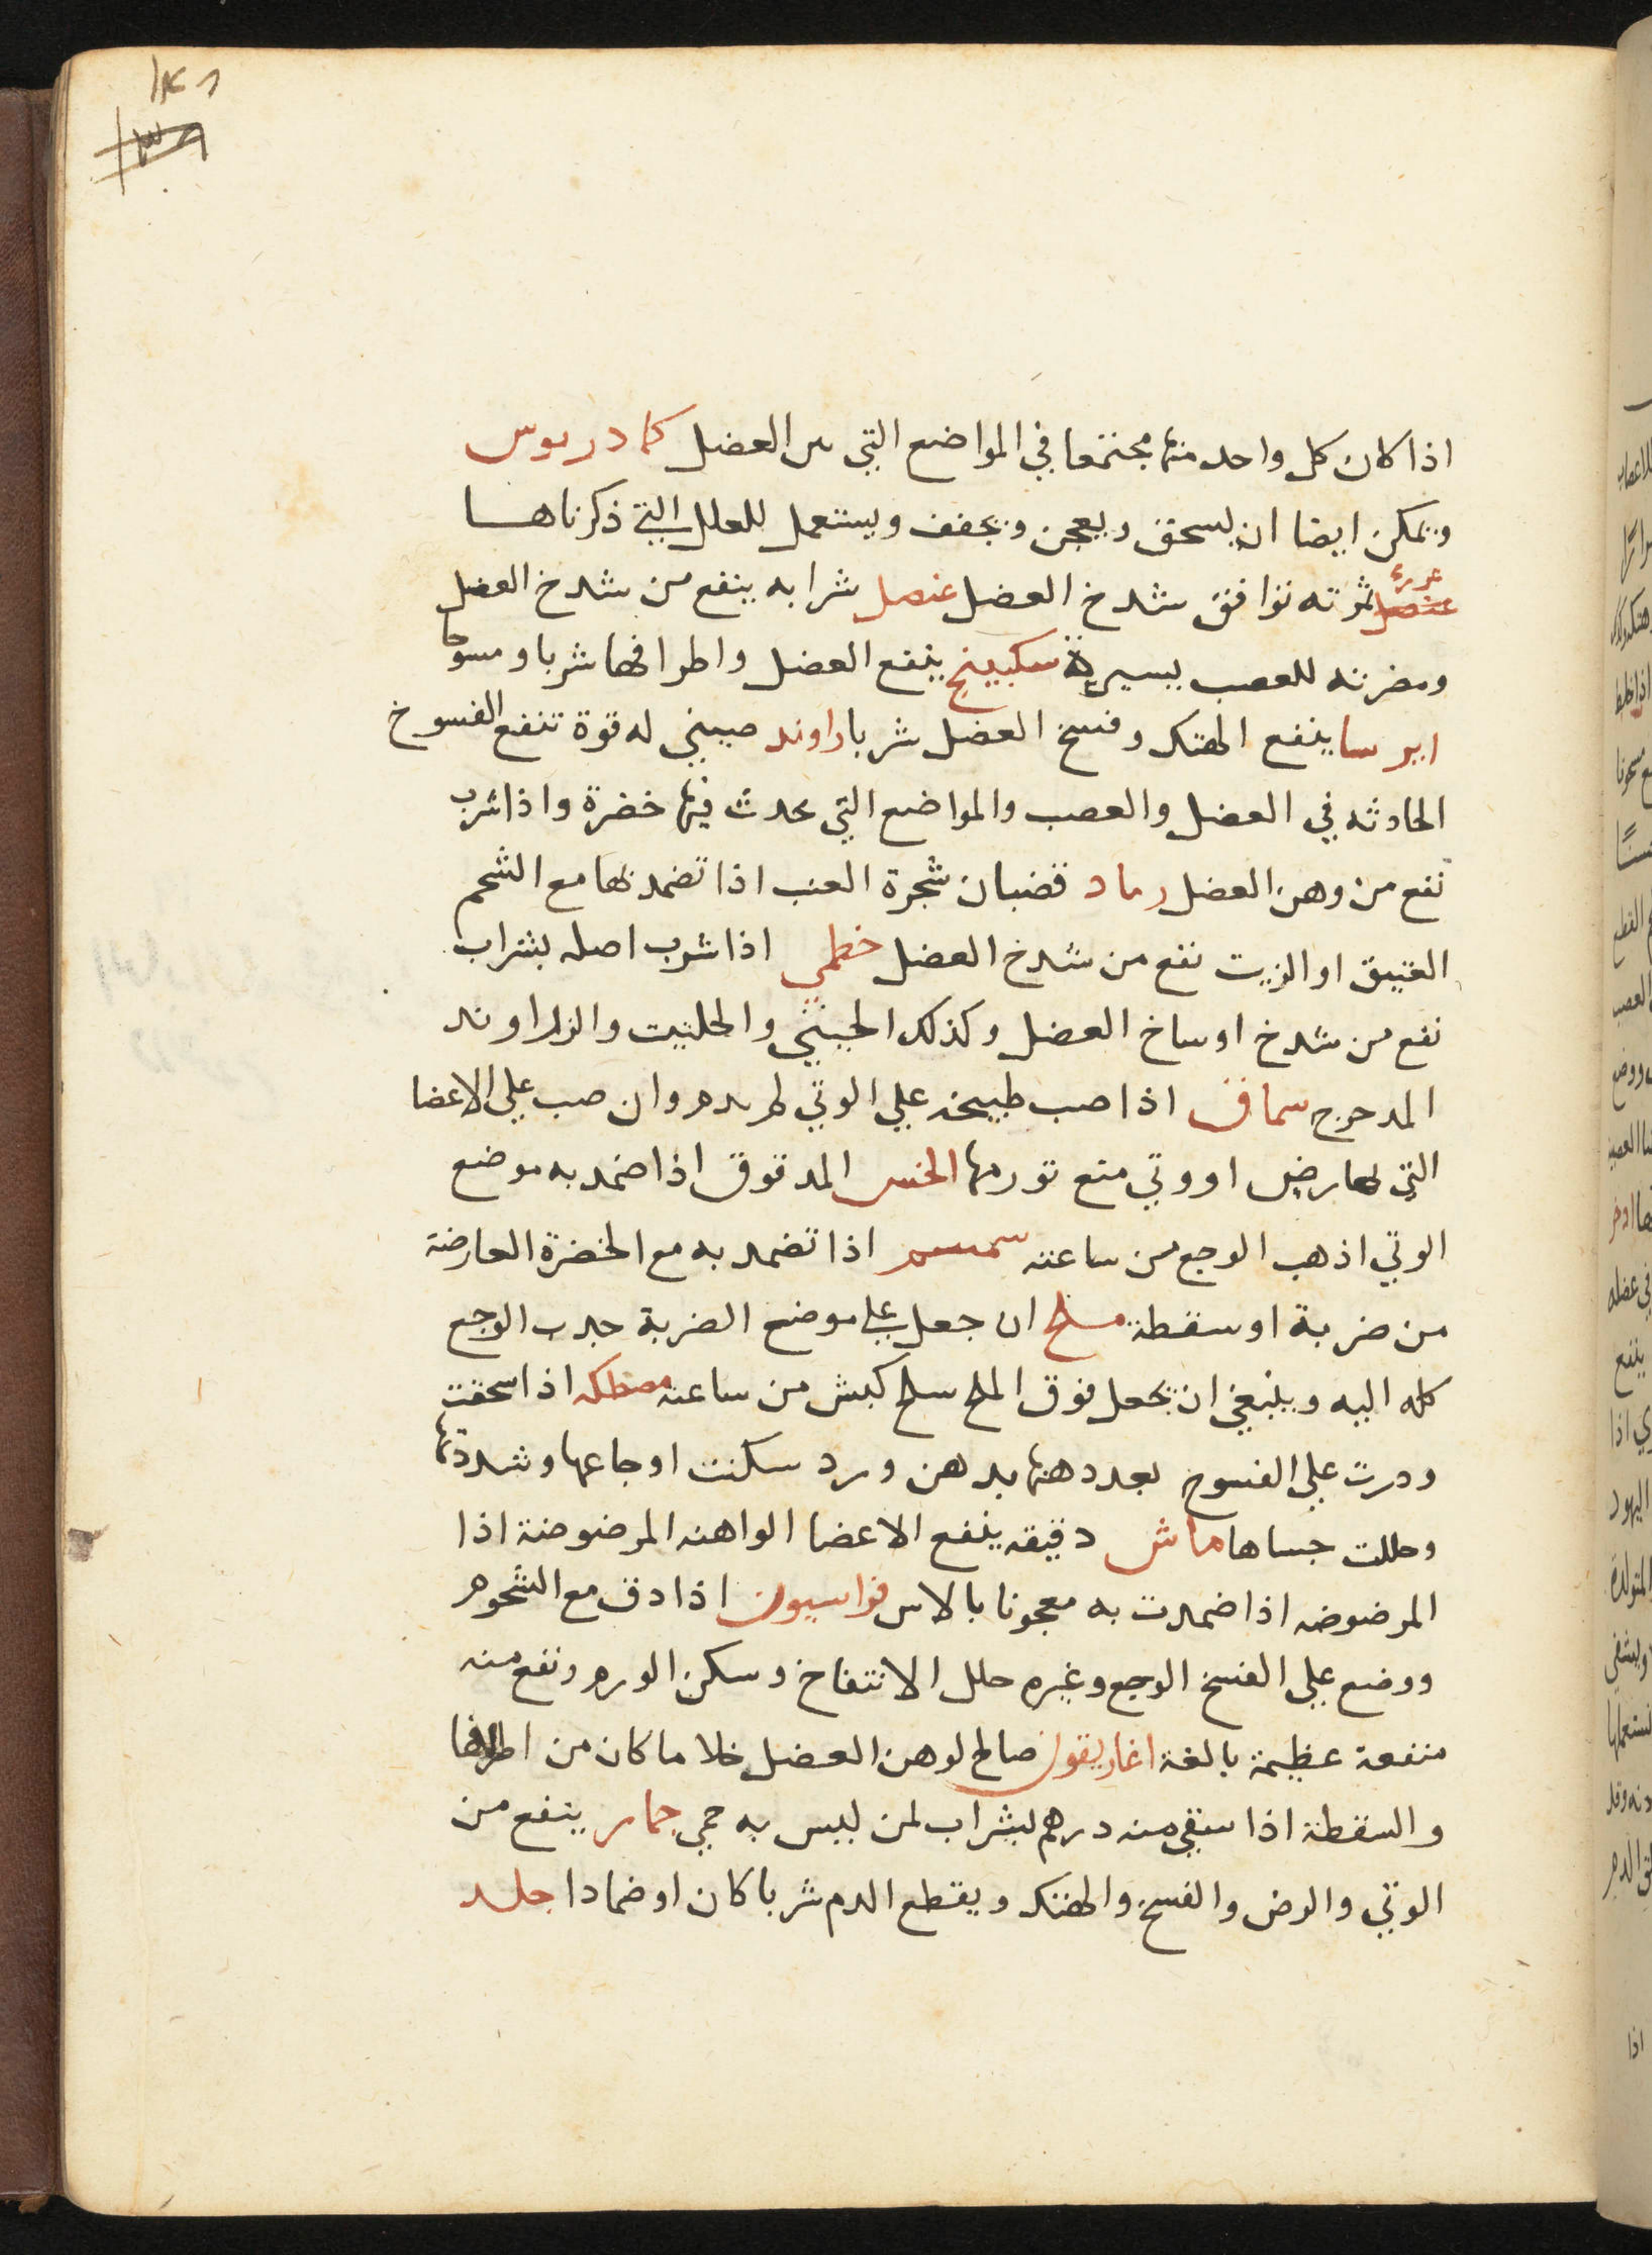 اذا كان كل واحد منها مجتمعا في المواضع التي من العضل كمادريوس
ويمكن ايضا ان يسحق ويعجن ويجفف ويستعمل للعلل التي ذكرناها
ثمرته توافق شدخ العضل عنصل شرابه ينفع من شدخ العضل
ومضرته للعصب يسيرة سكبينج ينفع العضل واطرافها شربا ومسوحا
ايرسا ينفع الهتك وفسخ العضل شربا راوند صيني له قوة تنفع الفسوخ
الحادثه في العضل والعصب والمواضع التي يحدث فيها خضرة واذا شرب
نفع من وهن العضل رماد قضبان شجرة العنب اذا تضمد بها مع الشحم
العتيق او الزيت نفع من شدخ العضل خطمي اذا شرب اصله بشراب
نفع من شدخ اوساخ العضل وكذلك الحبيثي والحلتيت والزراوند
المدحرج سماق اذا صب طبيخه علي الوثي لم يدم وان صب علي الاعضا
التي بها رض او وثي منع تورمها الخس المدقوق اذا ضمد به موضع
الوثي اذهب الوجع من ساعته سمسم اذا تضمد به مع الخضرة العارضة
من ضربة او سقطة ملح ان جعل علي موضع الضربة جذب الوجع
كله اليه وينبغي ان يجعل فوق الملح سلخ كبش من ساعته مصطكه اذا سحقت
وذرت علي الفسوخ بعد دهنها بدهن ورد سكنت اوجاعها وشددتها
وحللت جساها ماش دقيقه ينفع الاعضا الواهنه المرضوضة اذا
المرضوضه اذا ضمدت به معجونا بالاس فراسيون اذا دق مع الشحوم
ووضع علي الفسخ الوجع وغيره حلل الانتفاخ وسكن الورم ونفع منه
منفعة عظيمة بالغة اغاريقون صالح لوهن العضل خلا ما كان من اطرافها
والسقطة اذا سقي منه درهم بشراب لمن ليس به حمي جمار ينفع من
الوثي والرض والفسخ والهتك ويقطع الدم شربا كان او ضمادا جلد